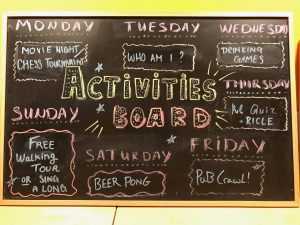 MONDAY
MOVIE NIGHT
CHESS TOURNAMENT
TUESDAY
WHO AM I?
WEDNESDAY
DRINKING
GAMES
ACTIVITIES
BOARD
THURSDAY
Pub Quiz
SUNDAY
FREE
Walking
TOUR
OR SING
A LONG
SATURDAY
BEER PONG
FRIDAY
PUB CRAWL!